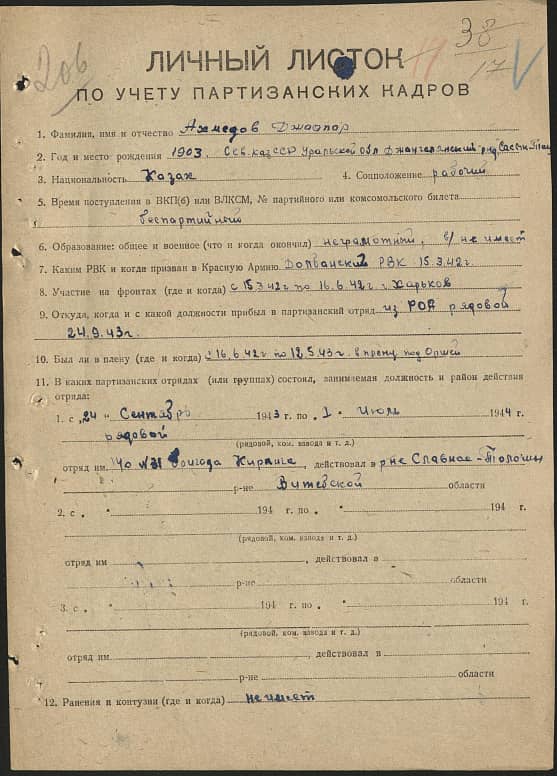 206
38
17
ЛИЧНЫЙ ЛИСТОК
ПО УЧЕТУ ПАРТИЗАНСКИХ КАДРОВ
1. Фамилия, имя и отчество Ахмедов Джаапор
2. Год и место рождения 1903. Сев. каз ССР Уральской обл
3. Национальность Казак 4. Соцположение рабочий
5. Время поступления в ВКП(б) или ВЛКСМ, № партийного или комсомольского билета
беспартийный
6. Образование: общее и военное (что и когда окончил) неграмотный, в/ не имеет
7. Каким РВК и когда призван в Красную Армию РВК 15.3.42г.
8. Участие на фронтах (где и когда) с 15.3.42г по 16.6.42г. г. Харьков
9. Откуда, когда и с какой должности прибыл в партизанский отряд из РОА рядовой
24.9.43г.
10. Был ли в плену (где и когда) с 16.6.42г по 12.5.43г. в плену под Оршей
11. В каких партизанских отрядах (или группах) состоял, занимаемая должность и район действия
отряда:
1. с „24 " Сентябрь 1943 г. по 1 " Июль 1944 г.
рядовой
(рядовой, ком. взвода и т. д.)
отряд им. по №31 бригада Кирпича, действовал в р-не Славное-Толочин
р-не Витебской области
2. с „ " 194 г. по „ " 194 г.
(рядовой, ком. взвода и т. д.)
отряд им , действовал в
р-не области
3. с „ " 194 г. по „ " 194 г.
(рядовой, ком. взвода и т. д.)
отряд им , действовал в
р-не области
12. Ранения и контузии (где и когда) не имеет